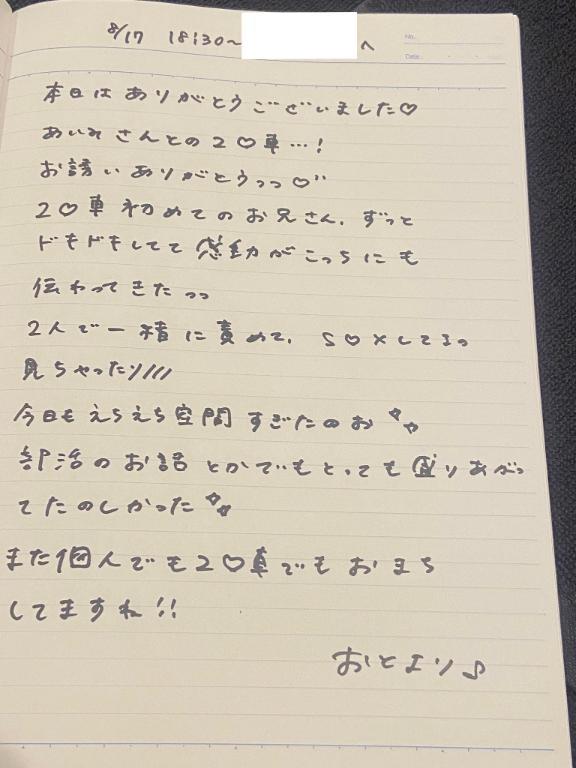 8/17 18:30〜 へ
No.
Date
本日はありがとうございました♡
あいみさんとの2♡車…!
お誘いありがとうっっ♡"
2♡車初めてのお兄さん、ずっと
ドキドキしてて感動がこっちにも
伝わってきたっっ
2人で一積に責めて、S♡×してるの
見ちゃったり///
今日もえちえち空間すぎたのお
部活のお話とかでもとっても盛りあがっ
てたのしかった
また個人でも2♡車でもおまち
してますね!!
おとエリ♪